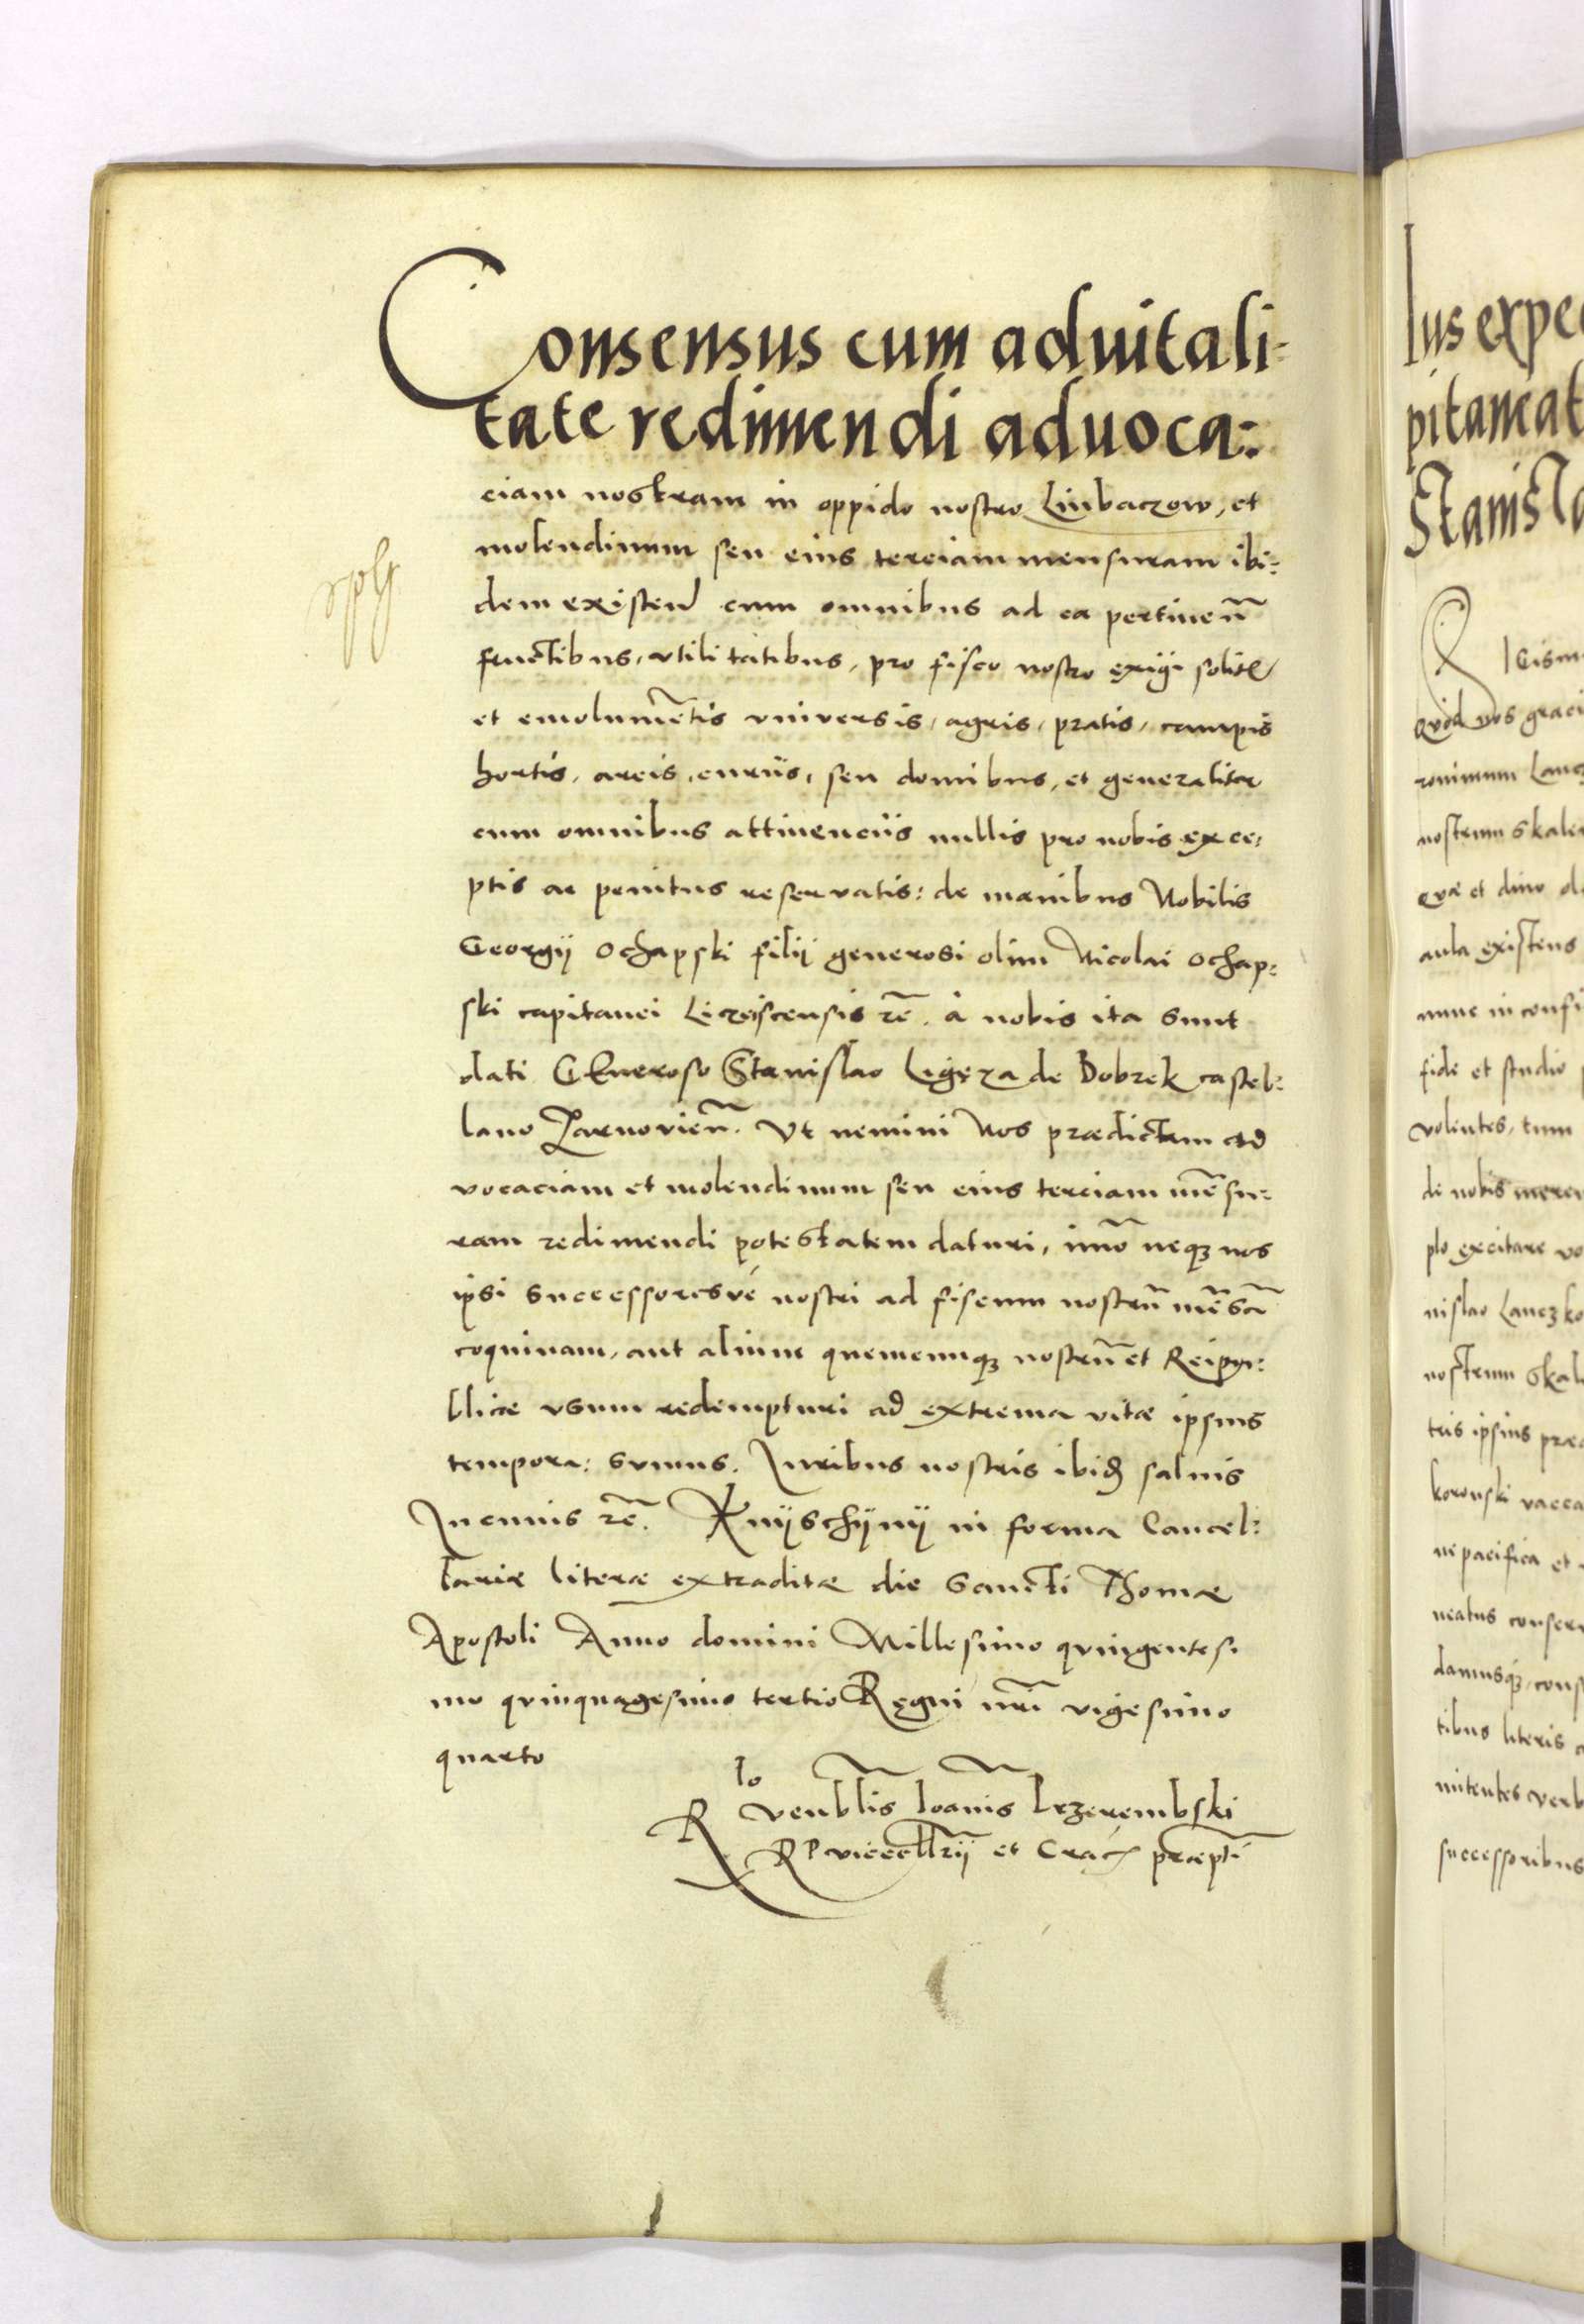 Consensus cum aduitali=
tate redimendi aduoca:
ciam nostram in oppido nostro Liubaczow, et
molendinum seu eius terciam mensuram ibi=
dem existen̄ cum omnibus ad ea pertinen̄
fructibus, vtilitatibus, pro fisco nostro exigi solitis
et emolumētis vniversis, agris, pratis, campis
hortis, areis, curiis, seu domibus, et generaliter
cum omnibus attinenciis nullis pro nobis exce,
ptis ac penitus reservatis: de manibus Nobilis
Georgij Ochapski filij generosi olim Nicolai Ochap:
ski capitanei rē. à nobis ita sunt
dati GEneroso Stanislao Ligęza de Bobrek castel:
lano Zarnovien̄. Vt nemini Nos prædictam ad
vocaciam et molendinum seu eius terciam mēsu=
ram redimendi potestatem daturi, imō neqz nos
ipsi successoresvé nostri ad fiscum nostrū mēsā
coquinam, aut alium quemcunqz nostrū et Reipu:
blicæ vsum redempturi ad extrema vitæ ipsius
tempora: sumus. Iuribus nostris ibid̄ saluis
In cuius rē. Knijschijnij in forma Cancel:
lariæ literæ extraditæ die Sancti Thomæ
Apostoli Anno domini Millesimo quingentesi
mo quinquagesimo tertio Regni nrī vigesimo
quarto
Io
R venblīs Ioanis Przerembski
RP vicecllrij et Crac præptī
Ius expec
pitaneat
Stanisla
quod nos graci
ronimum Lancz
nostrum Skale
quæ et dino
aula existens
nunc in confi
fide et studio
volentes, tum
de nobis mere
plo excitare vo
nislao Lanczko
nostrum Skal
tris ipsius præ
koronski vaca
ni pacifica et
neatus conser
damusqz, cons
tibus literis
mitentes verb
successoribus